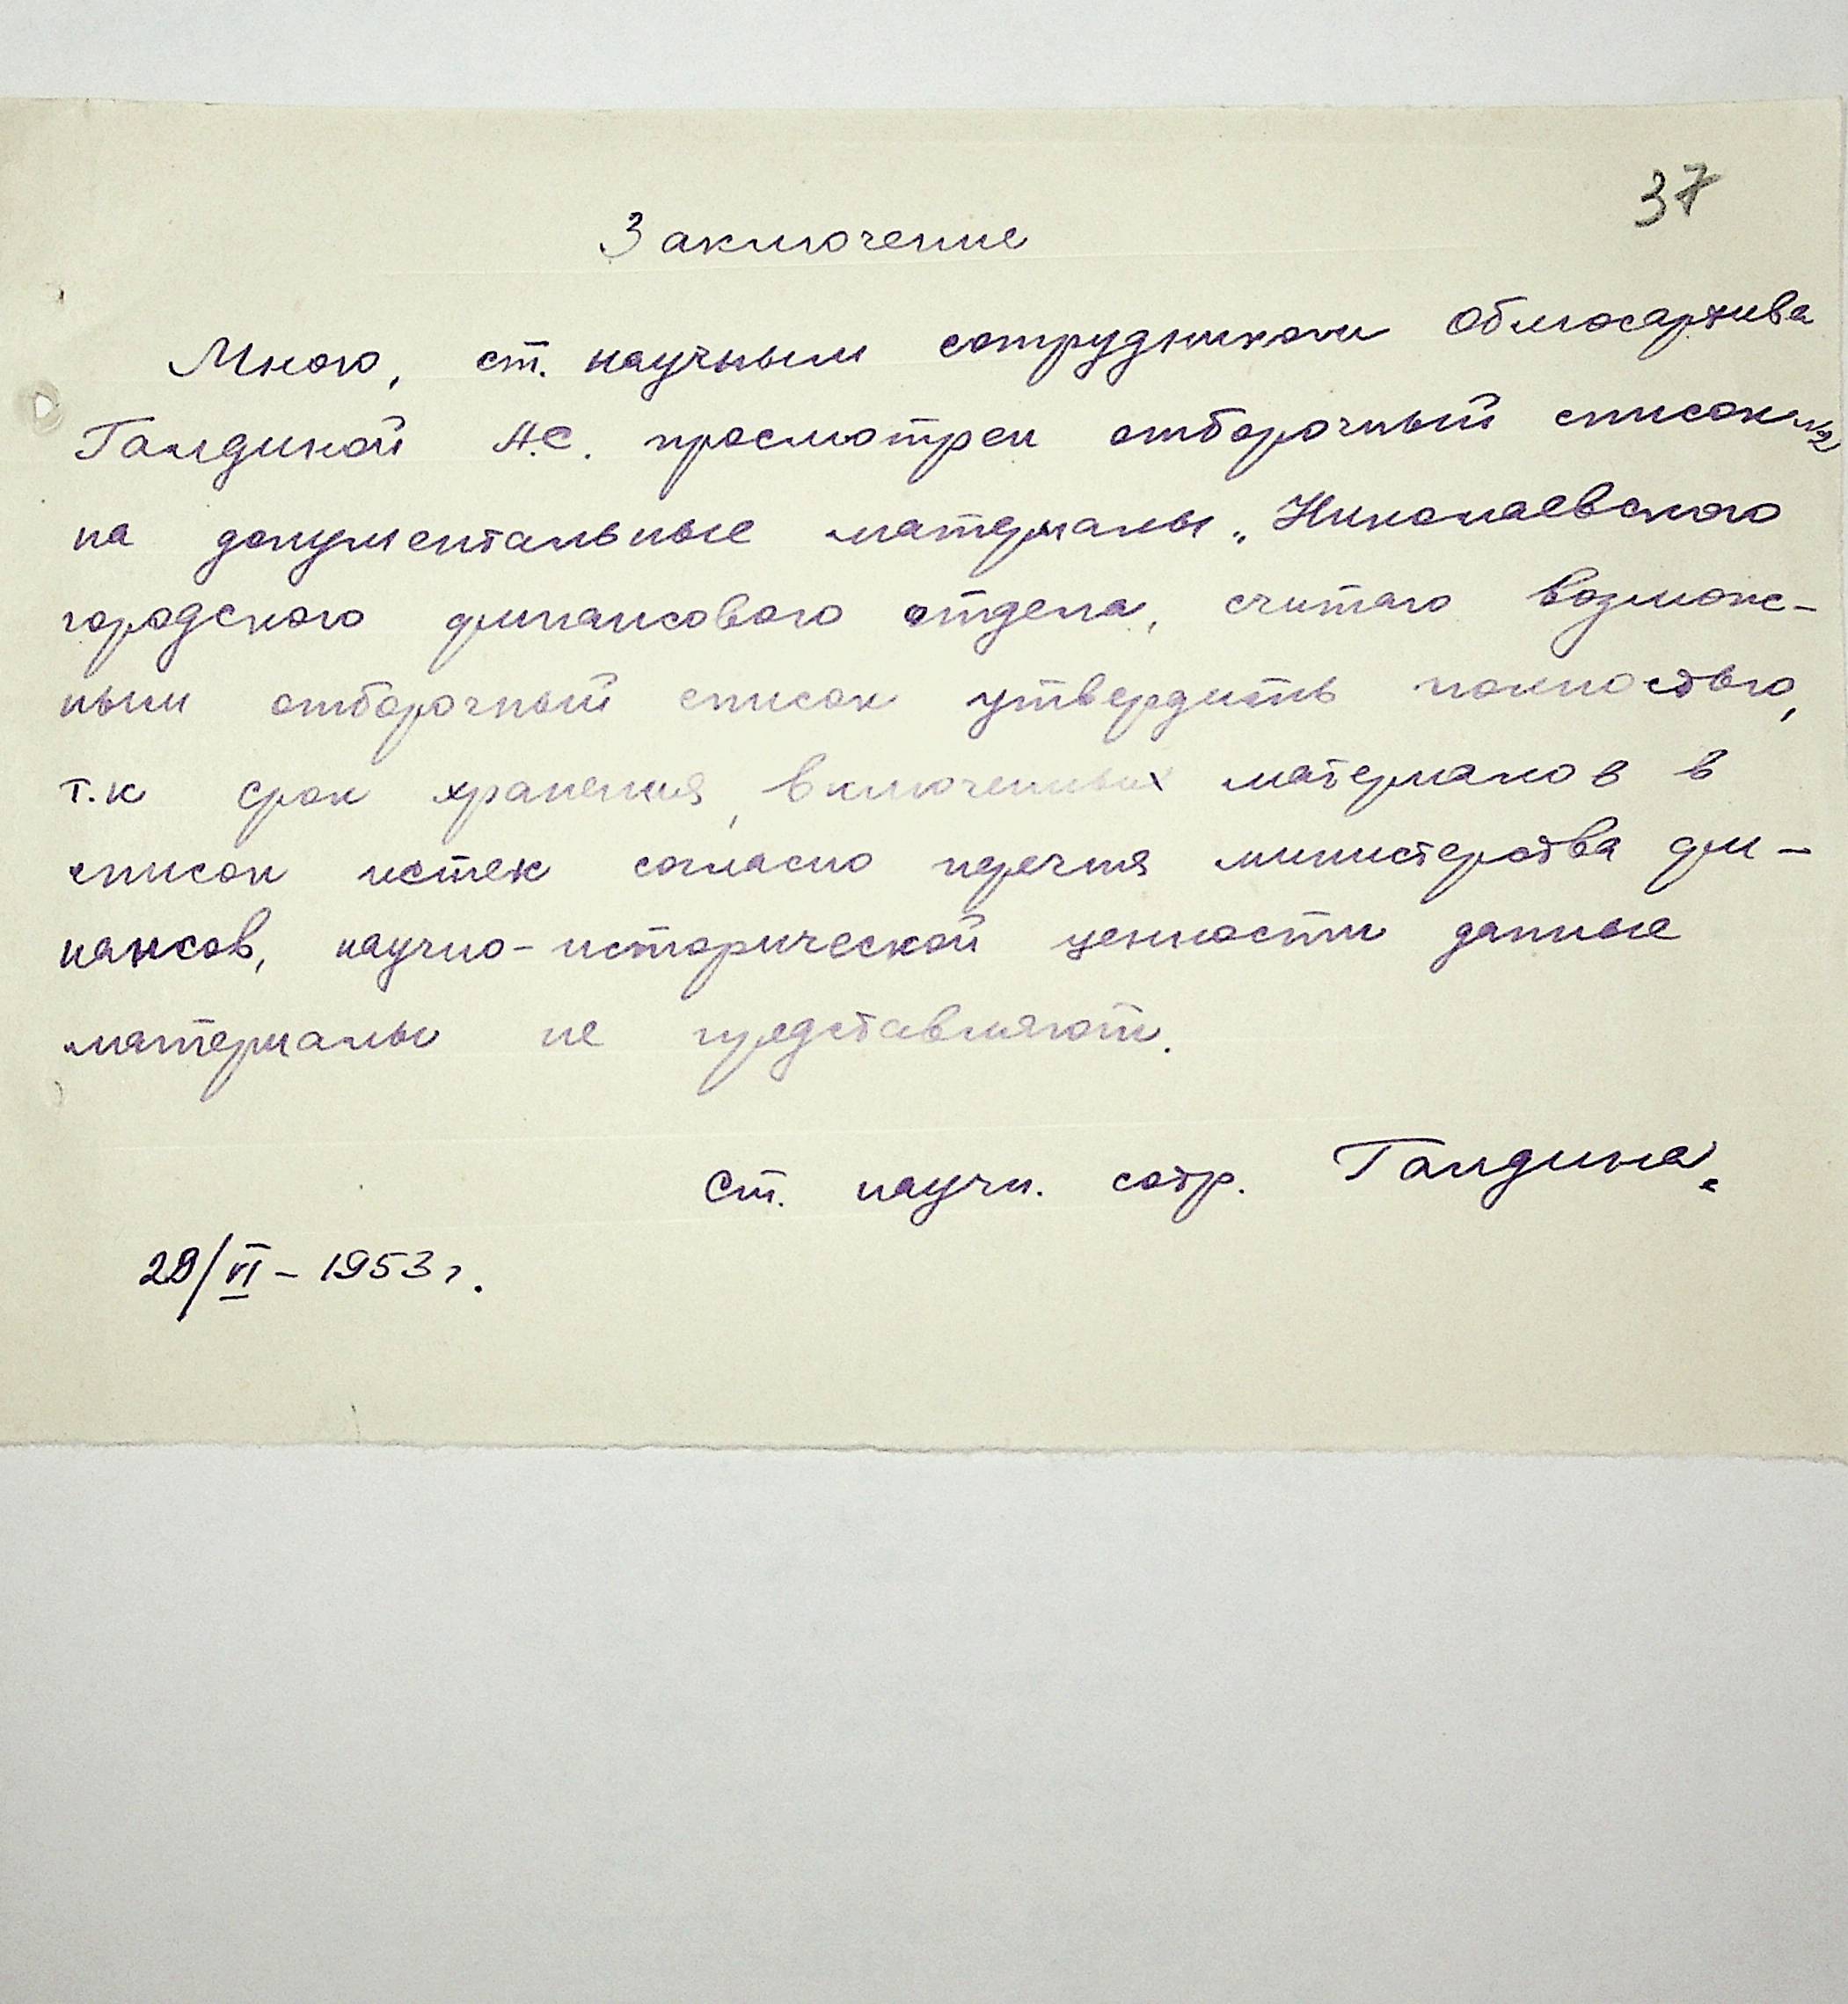 37
Заключение
Мною, ст. научным сотрудником Облгосархива
Галдиной А.С. просмотрен отборочный список №2
на документальные материалы „Николаевского
городского финансового отдела, считаю возмож-
ным отборочный список утвердить полностью,
т.к срок хранения, включенных материалов в
список истек согласно перечня министерства фи-
нансов, научно-исторической ценности данные
материалы не представляют.
Ст. научн. сотр. Галдина.
29/VI – 1953 г.